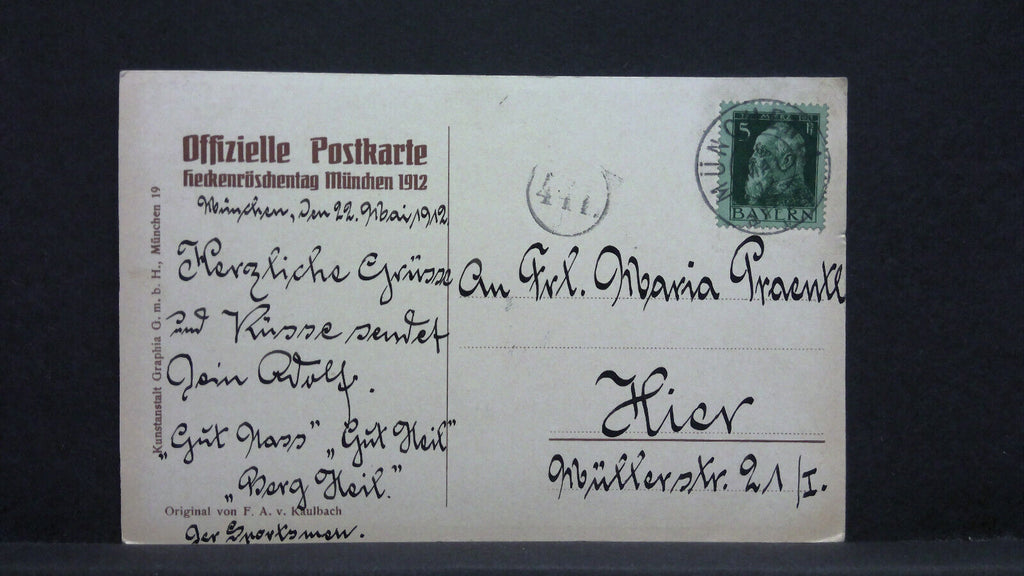 Offizielle Postkarte
Heckenröschentag München 1912
München, den 22. Mai 1912
Herzliche Grüsse
und Küsse sendet
Dein Adolf.
„Gut Nass" „Gut Heil"
„Berg Heil."
Original von F. A. v. Kaulbach
Der Sportsmen.
Kunstanstalt Graphia G. m. b. H., München 19
MÜNCHEN
5
BAYERN
An Frl. Maria Praentl
Hier
Müllerstr. 21/I.